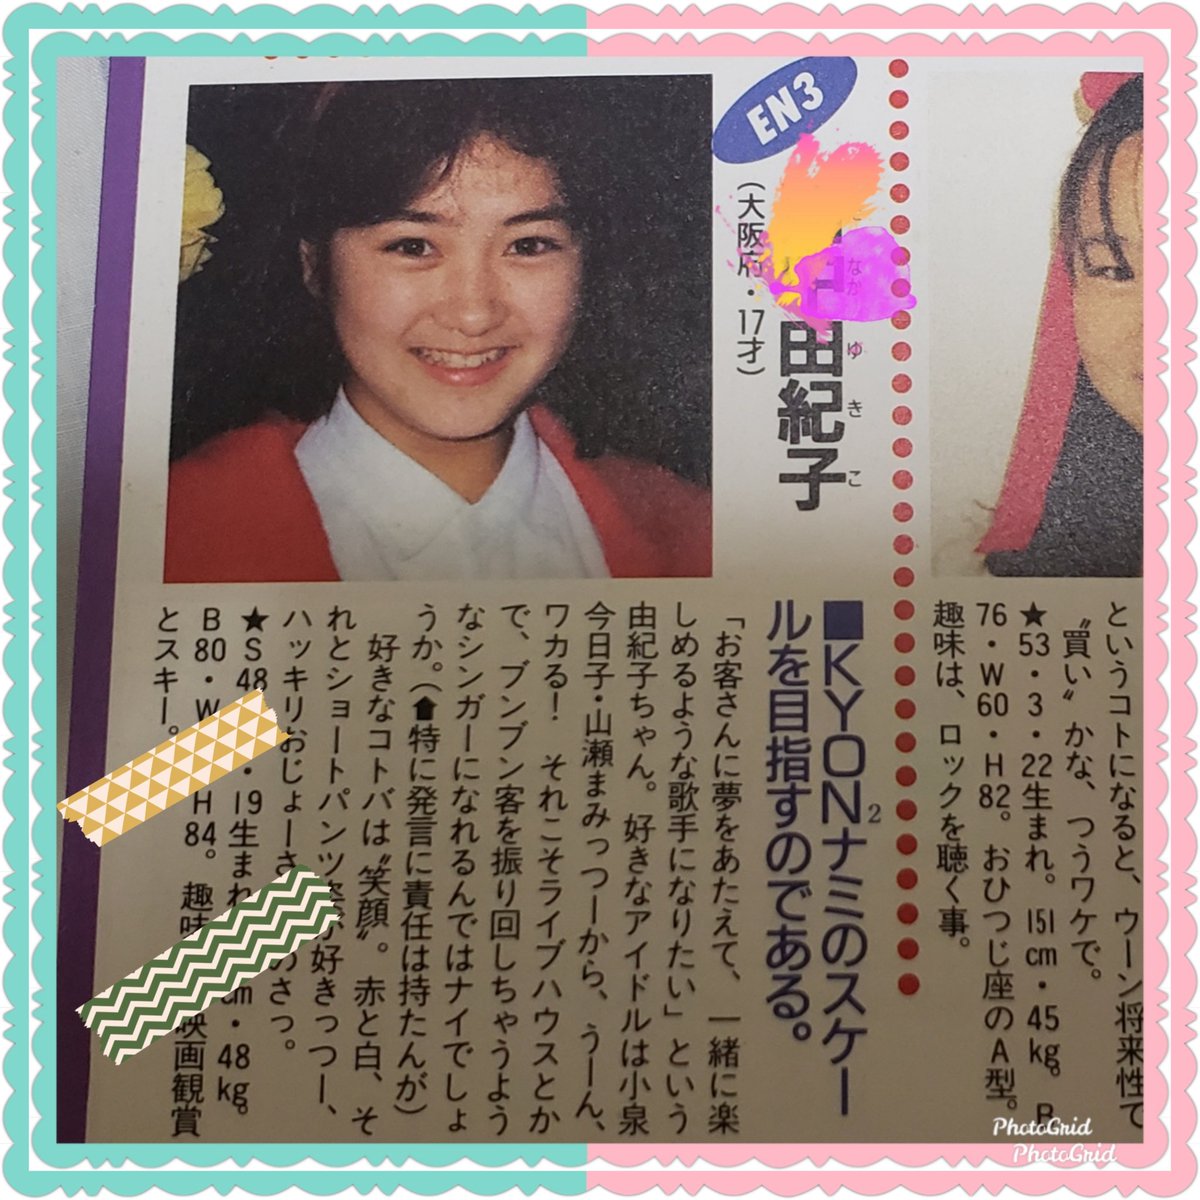 というコトになると、ウーン将来性で
〝買い〟かな、つうワケで。
★53・3・22生まれ。151cm・45kg。B
76・W60・H82。おひつじ座のA型。
趣味は、ロックを聴く事。
EN3
なか ゆきこ
由紀子
(大阪府・17才)
■KYON2ナミのスケー
ルを目指すのである。
「お客さんに夢をあたえて、一緒に楽
しめるような歌手になりたい」という
由紀子ちゃん。好きなアイドルは小泉
今日子・山瀬まみっつーから、うーん、
ワカる! それこそライブハウスとか
で、ブンブン客を振り回しちゃうよう
なシンガーになれるんではナイでしょ
うか。(⬆特に発言に責任は持たんが)
好きなコトバは〝笑顔〟。赤と白、そ
れとショートパンツ姿が好きっつー、
ハッキリおじょーさ のさっ。
★S48 ・19生まれ cm・48kg。
B80・W H84。趣味 映画観賞
とスキー。
PhotoGrid
PhotoGrid